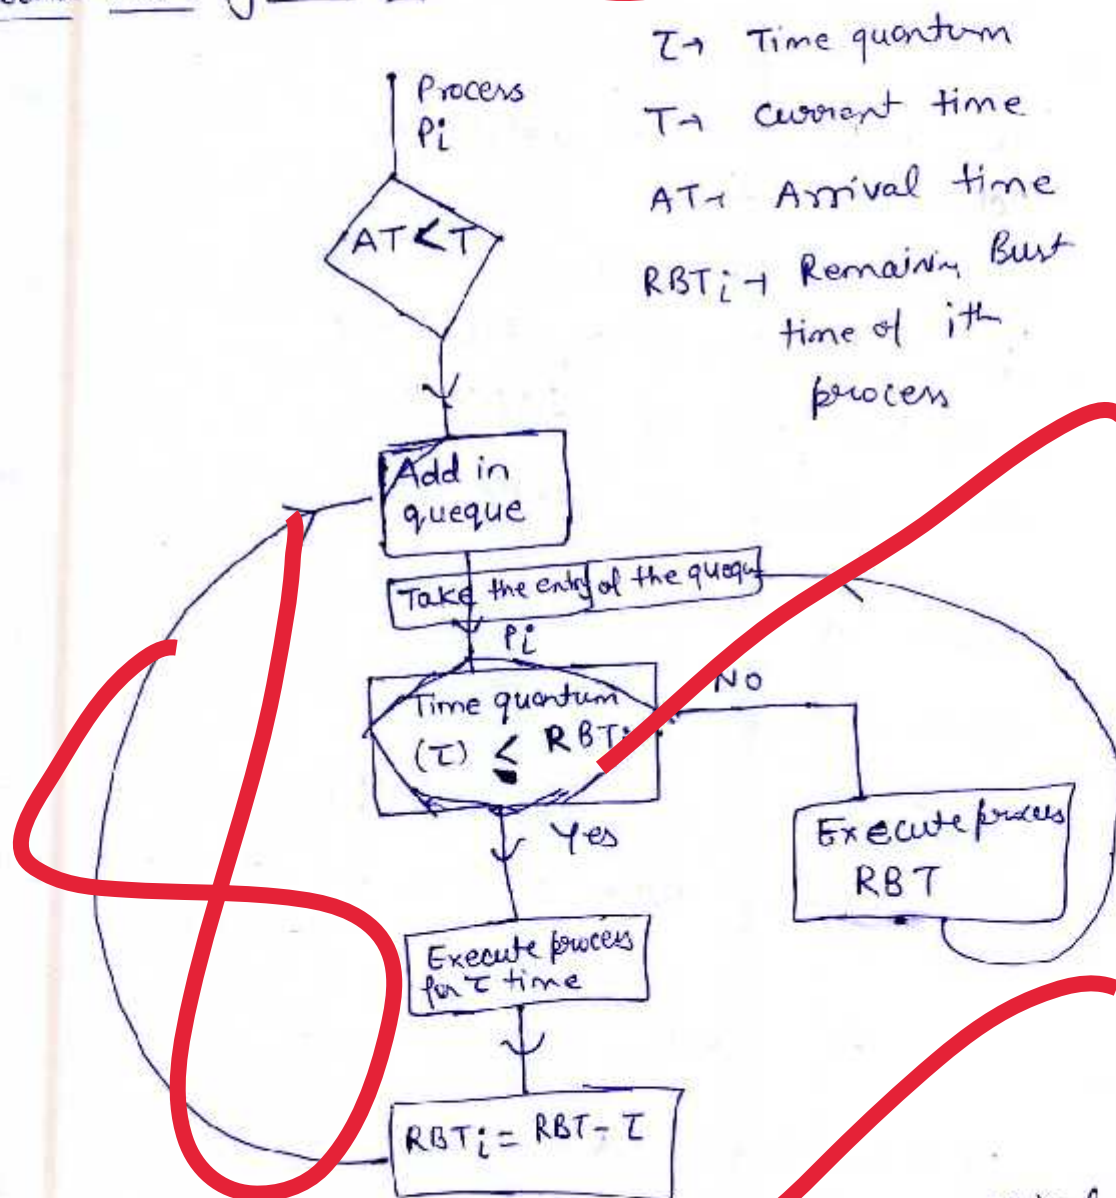 τ→ Time quantum
T→ current time
AT→ Arrival time
RBTi→ Remaining Bust
time of ith
process
Process
Pi
AT<T
Add in
queque
Take the entry of the queque
Pi
Time quantum
(τ) ≤ RBTi
No
Yes
Execute process
RBT
Execute process
for τ time
RBTi = RBT - τ